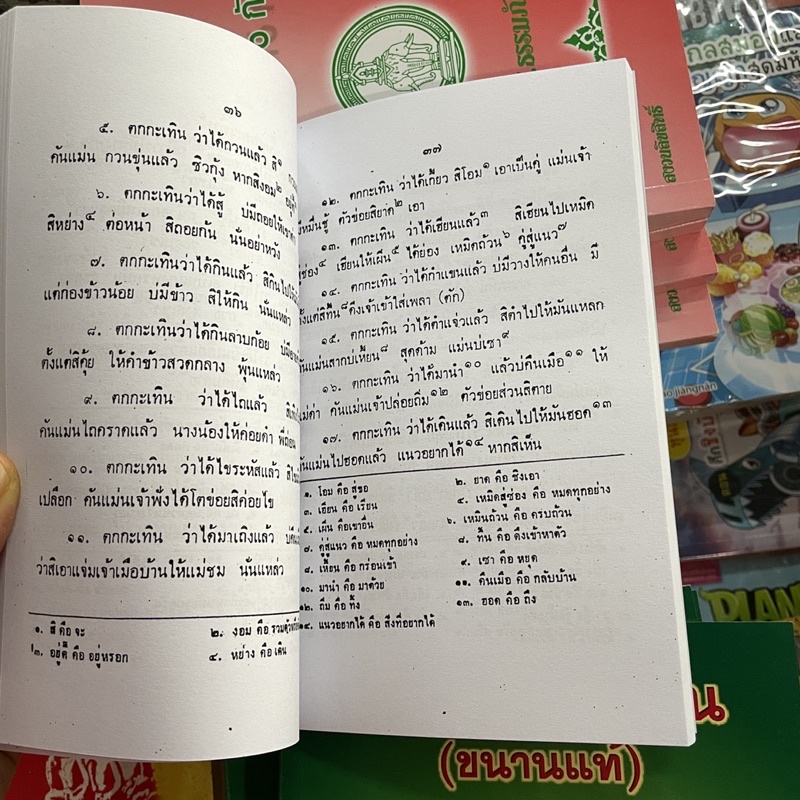 ๓๖
๕. ตกกะเทิน ว่าได้กวนแล้ว สิ๑
คันแม่น กวนขุ่นแล้ว ชิวกุ้ง หากสิงอม๒
๖. ตกกะเทินว่าได้สู้ บ่มีถอยให้
สิหย่าง๔ ต่อหน้า สิถอยกัน นั่นอย่าหวัง
๗. ตกกะเทินว่าได้กินแล้ว สิกินไป
แต่ก่องข้าวน้อย บ่มีข้าว สิให้กิน นั่นแหล่ว
๘. ตกกะเทินว่าได้กินลาบก้อย
ตั้งแต่สิคุ้ย ให้คำข้าวสวดกลาง พุ้นแหล่ว
๙. ตกกะเทิน ว่าได้ไถแล้ว
คันแม่นไถคราดแล้ว นางน้องให้ค่อยดำ พี่ถ่อน
๑๐. ตกกะเทิน ว่าได้ไขระหัสแล้ว
เปลือก คันแม่นเจ้าพั่งได้โตข่อยสิค่อยไข
๑๑. ตกกะเทิน ว่าได้มาเถิงแล้ว
ว่าสิเอาแจ่มเจ้าเมือบ้านให้แม่ชม นั่นแหล่ว
๑. สิ คือ จะ
๒. งอม คือ
๓. อยู่ดี๊ คือ อยู่หรอก
๔. หย่าง คือ เดิน
๓๗
๑๒. ตกกะเทิน ว่าได้เกี้ยว สิโอม๑ เอาเป็นคู่ แม่นเจ้า
มีหมื่นชู้ ตัวข่อยสิยาด๒ เอา
๑๓. ตกกะเทิน ว่าได้เฮียนแล้ว๓ สิเฮียนไปเหมิด
ช่อง๔ เฮียนให้เผิ่น๕ ได้ย่อง เหมิดถ้วน๖ คู่สู่แนว๗
๑๔. ตกกะเทิน ว่าได้กำแขนแล้ว บ่มีวางให้คนอื่น มี
ตั้งแต่สิทื้น๘ ดึงเจ้าเข้าใส่เพลา (ตัก)
๑๕. ตกกะเทิน ว่าได้ตำแจ่วแล้ว สิตำไปให้มันแหลก
คันแม่นสากบ่เหี้ยน๘ สุดด้าม แม่นบ่เซา๙
๑๖. ตกกะเทิน ว่าได้มานำ๑๐ แล้วบ่คืนเมือ๑๑ ให้
แม่ด่า คันแม่นเจ้าปล่อยถิ่ม๑๒ ตัวข่อยส่วนสิตาย
๑๗. ตกกะเทิน ว่าได้เดินแล้ว สิเดินไปให้มันฮอด๑๓
คันแม่นไปฮอดแล้ว แนวอยากได้๑๔ หากสิเห็น
๑. โอม คือ สู่ขอ
๒. ยาด คือ ชิงเอา
๓. เฮียน คือ เรียน
๔. เหมิดสู่ช่อง คือ หมดทุกอย่าง
๕. เผิ่น คือเขาอื่น
๖. เหมินถ้วน คือ ครบถ้วน
๗. คู่สู่แนว คือ หมดทุกอย่าง
๘. ทื้น คือ ดึงเข้าหาตัว
๘. เหี้ยน คือ กร่อนเข้า
๙. เซา คือ หยุด
๑๐. มานำ คือ มาด้วย
๑๑. คืนเมือ คือ กลับบ้าน
๑๒. ถิ่ม คือ ทิ้ง
๑๓. ฮอด คือ ถึง
๑๔. แนวอยากได้ คือ สิ่งที่อยากได้
สงวนลิขสิทธิ์
(ขนานแท้)